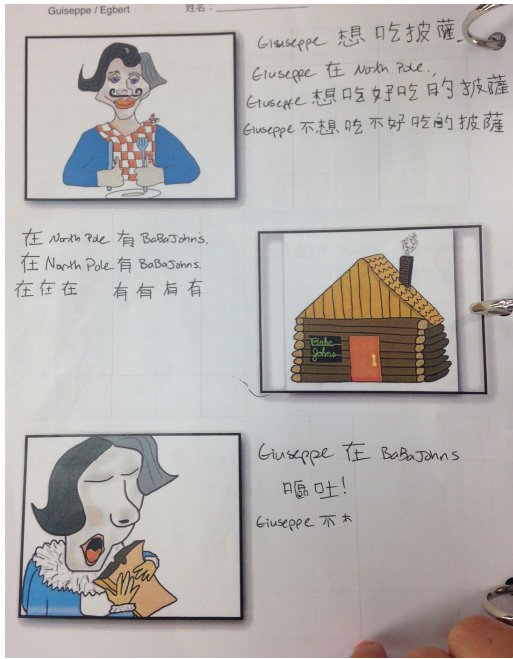 Guiseppe / Egbert 姓名：
Giuseppe 想 吃 披薩
Giuseppe 在 North Pole.
Giuseppe 想 吃 好 吃 的 披薩
Giuseppe 不 想 吃 不 好 吃 的 披薩
在 North Pole 有 BaBaJohns.
在 North Pole 有 BaBaJohns.
在 在 在 有 有 有 有
Baba
Johns
Giuseppe 在 BaBaJohns
嘔吐!
Giuseppe 不